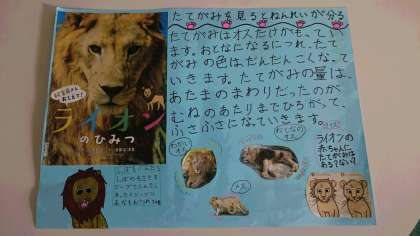 たてがみを見るとねんれいが分る
たてがみはオスだけがもってい
ます。おとなになるにつれ、たて
がみの色は、だんだんこくなっ
ていきます。たてがみの量は、
あたまのまわりだったのが
むねのあたりまでひろがって、
ふさふさになっていきます。
飼育員さん
おしえて!
ライオン
のひみつ
わかい
オス
おとなの
オス
メス
クイズ
ライオンの
赤ちゃんに
たてがみは
ある?ない?